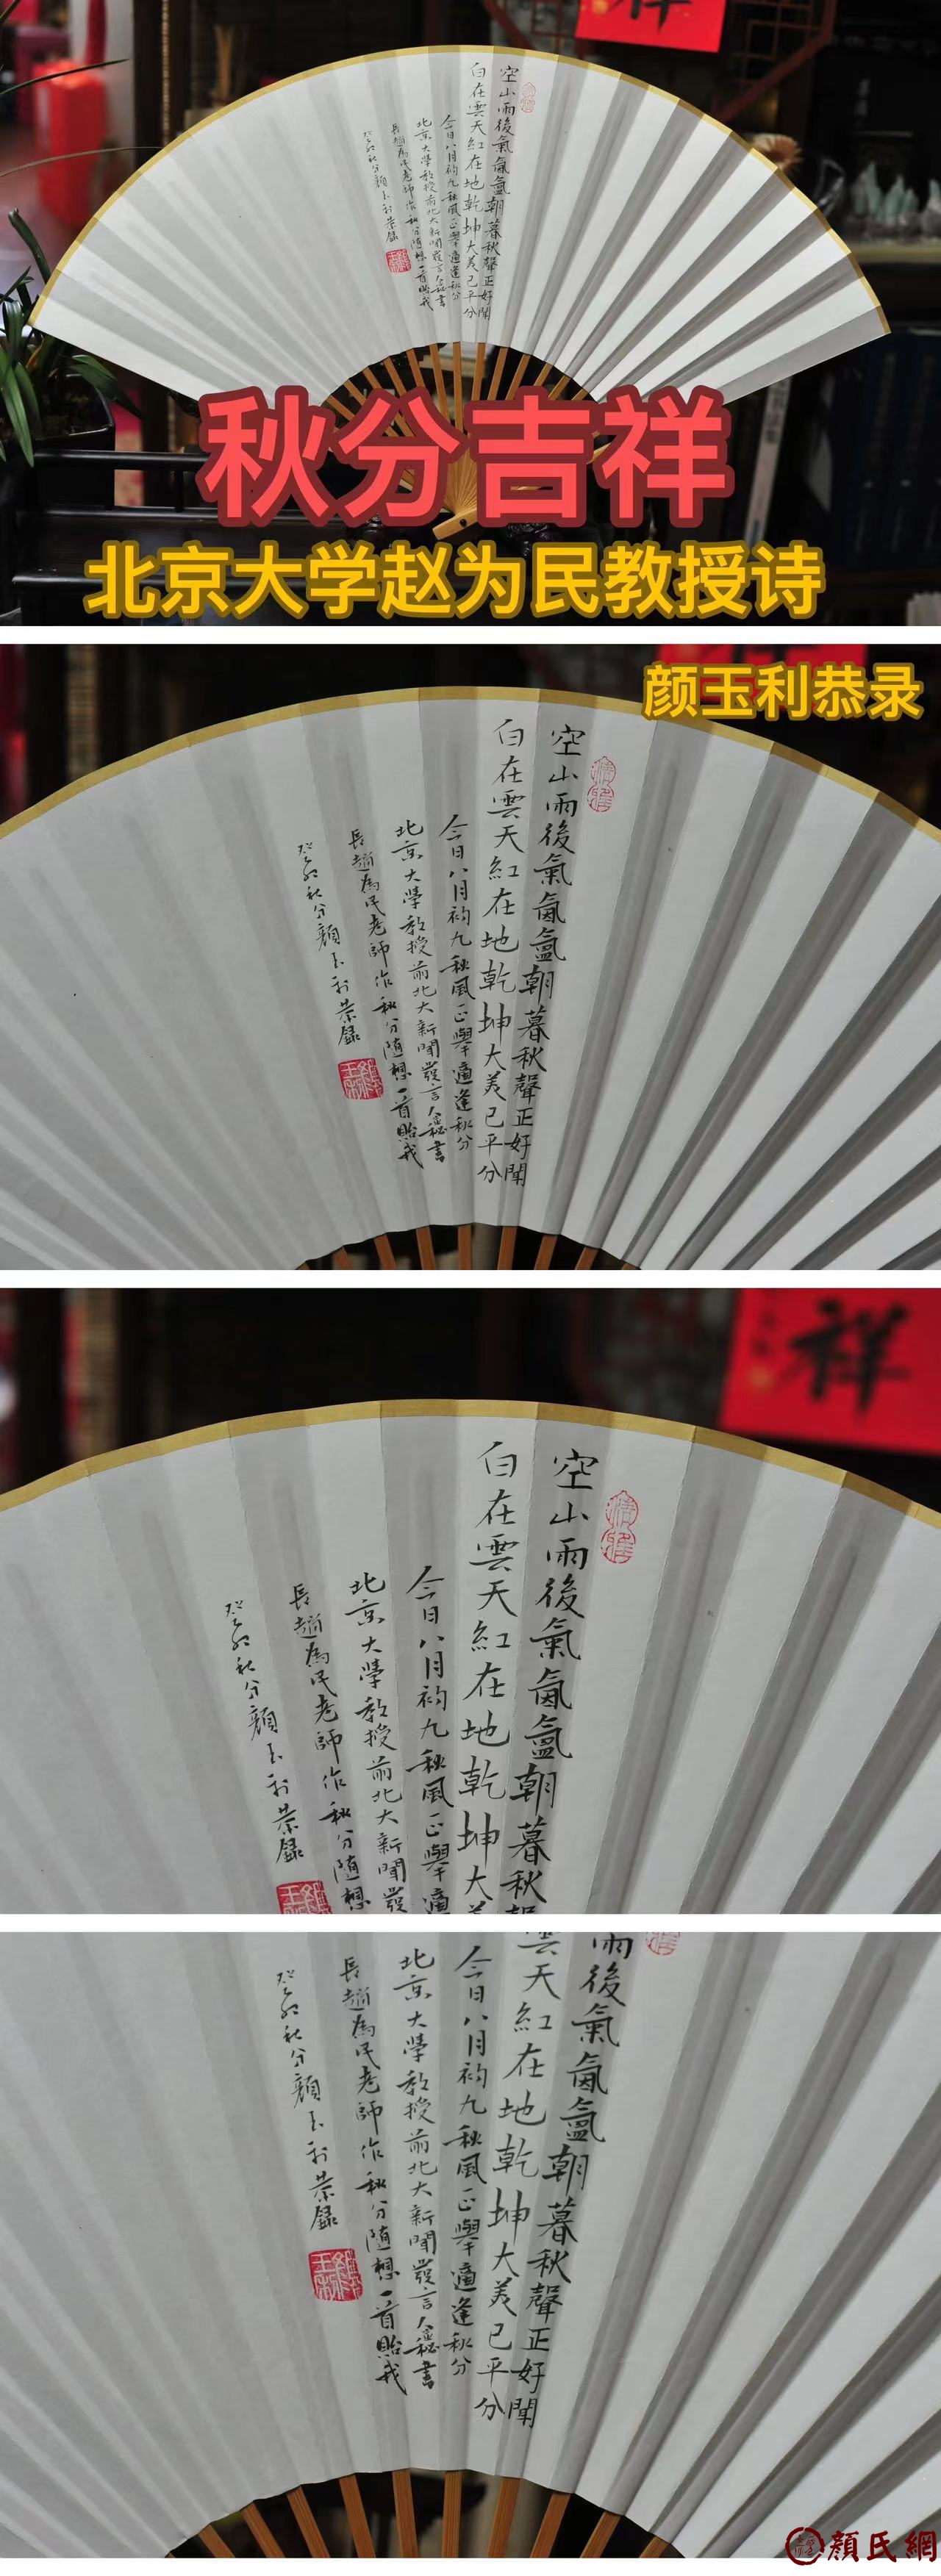 空山雨後氣氤氳朝暮秋聲正好聞
白在雲天紅在地乾坤大美已平分
今日八月初九秋風正舉適逢秋分
北京大學教授前北大新聞發言人秘書
長趙為民老師作秋分随想一首貽我
癸卯秋分顏玉利恭錄
秋分吉祥
北京大学赵为民教授诗
颜玉利恭录
空山雨後氣氤氳朝暮秋聲正好聞
白在雲天紅在地乾坤大美已平分
今日八月初九秋風正舉適逢秋分
北京大學教授前北大新聞發言人秘書
長趙為民老師作秋分随想一首貽我
癸卯秋分顏玉利恭錄
祥
空山雨後氣氤氳朝暮秋
白在雲天紅在地乾坤大
今日八月初九秋風正舉適
北京大學教授前北大新聞發
長趙為民老師作秋分随想
癸卯秋分顏玉利恭錄
雨後氣氤氳朝暮秋聲正好聞
雲天紅在地乾坤大美已平分
今日八月初九秋風正舉適逢秋分
北京大學教授前北大新聞發言人秘書
長趙為民老師作秋分随想一首貽我
癸卯秋分顏玉利恭錄
顏氏網